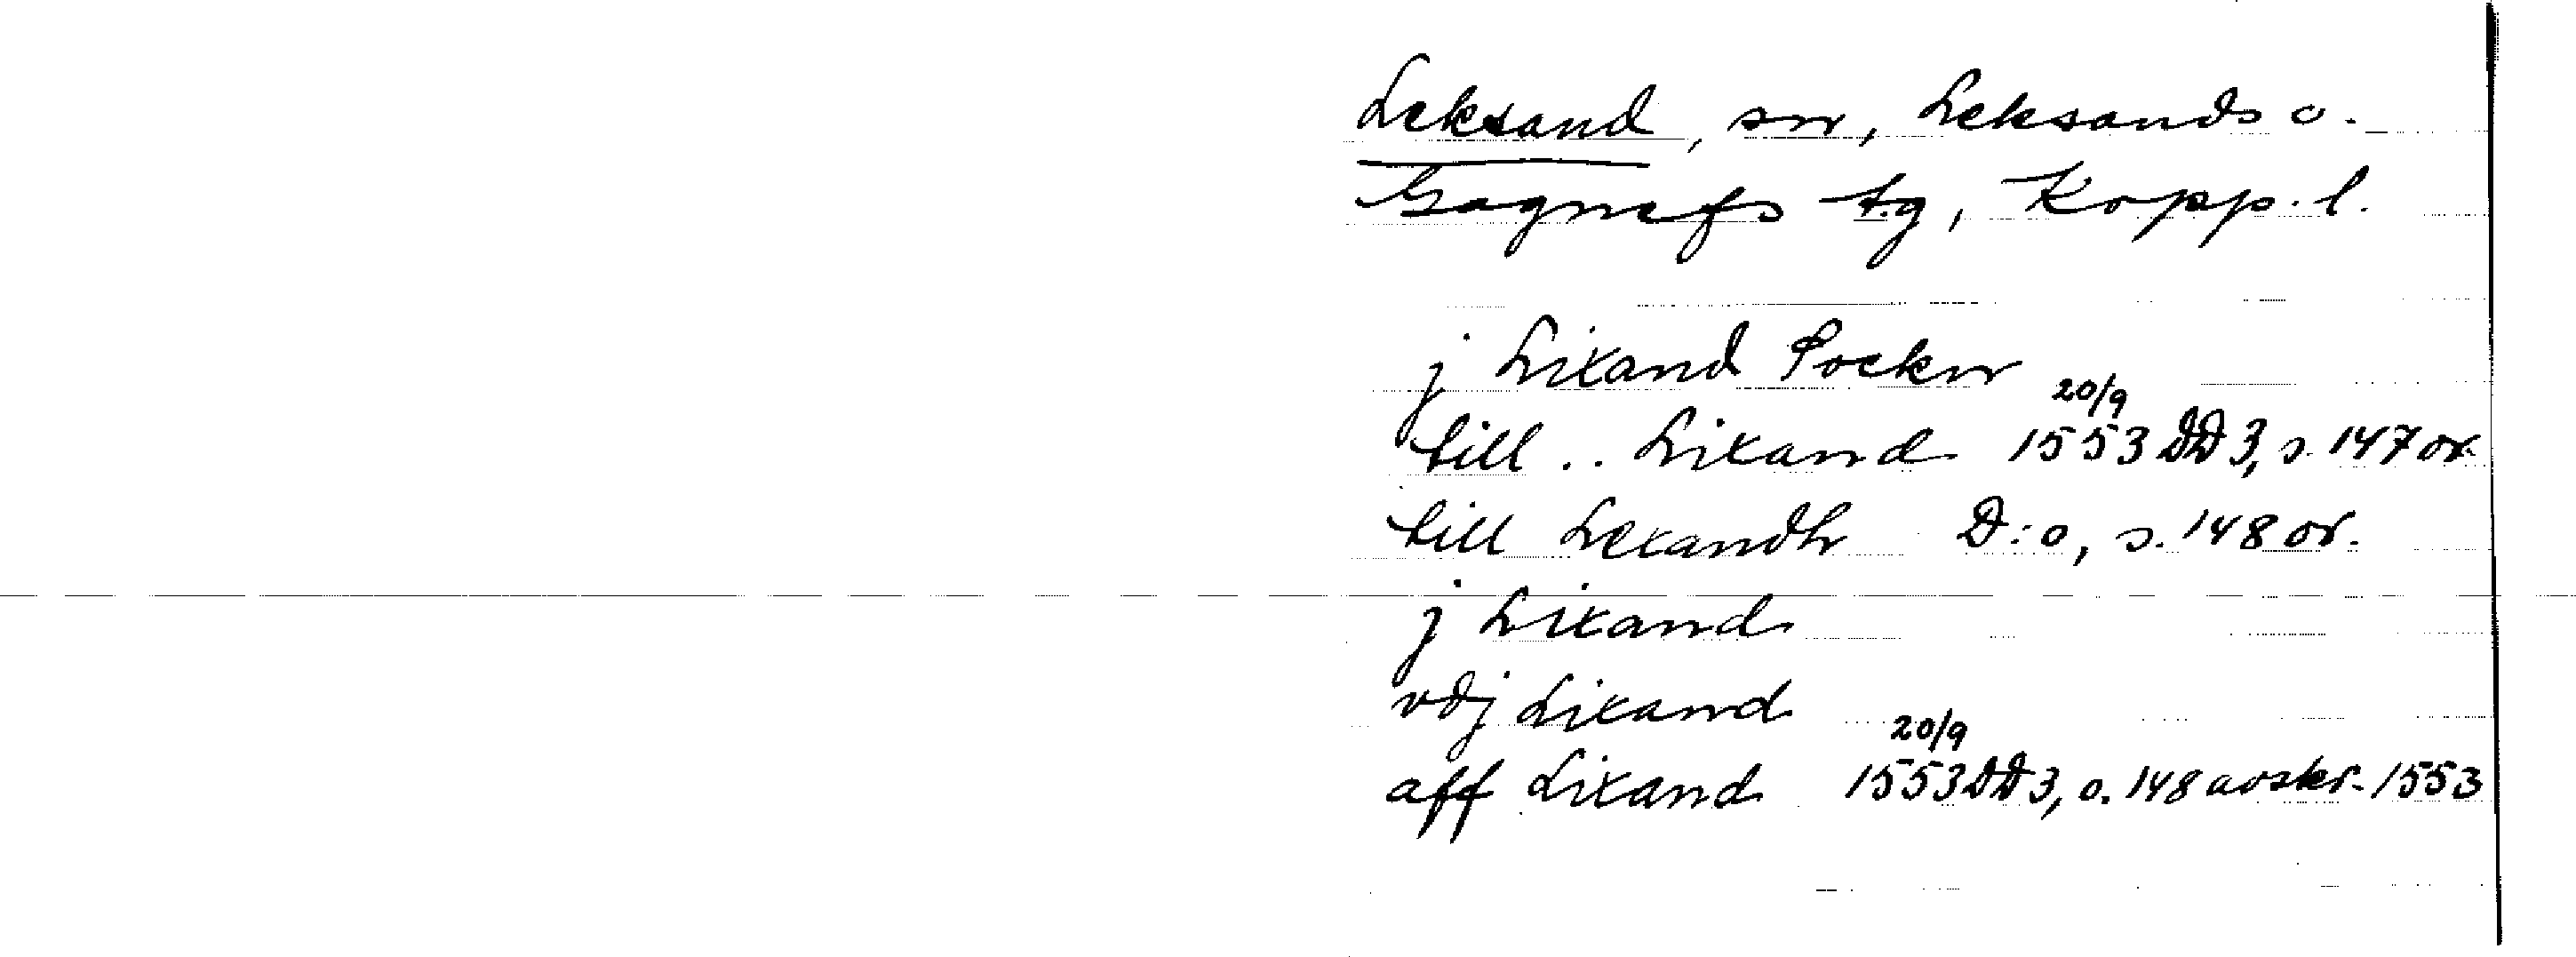 Leksand, sn, Leksands o.
Gagnefs tg, Kopp. l.
j Lixand Sockn
till .. Lixand 20/9 1553 DD 3, s. 147 or.
till Lexandh D:o, s. 148 or.
j Lixand
vdj Lixand
aff Lixand 20/9 1553 DD 3, s. 148 avskr. 1553